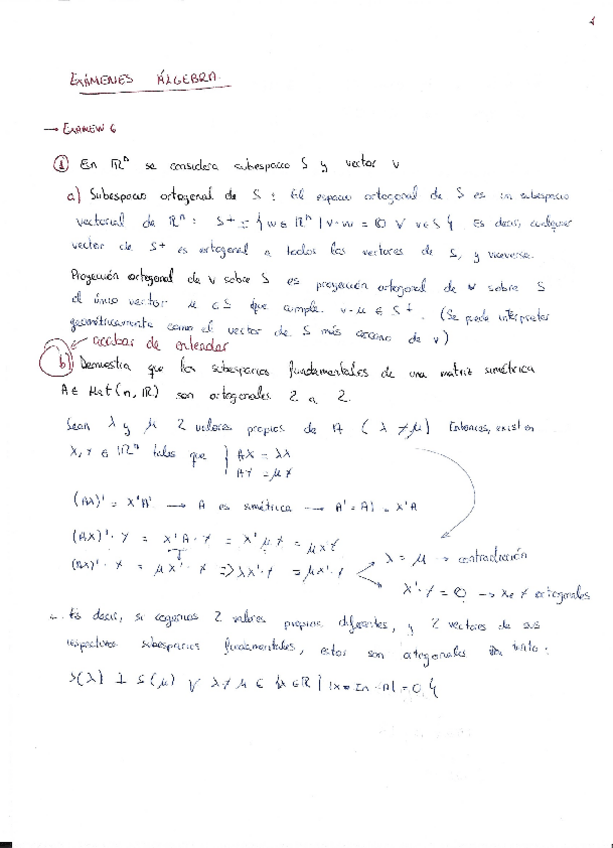 1
EXÁMENES ÁLGEBRA.
→ EXAMEN 6
① En ℝⁿ se considera subespacio S y vector v
a) Subespacio ortogonal de S: El espacio ortogonal de S es un subespacio
vectorial de ℝⁿ: S⊥ = { w ∈ ℝⁿ | v·w = 0 ∀ v ∈ S }. Es decir, cualquier
vector de S⊥ es ortogonal a todos los vectores de S, y viceversa.
Proyección ortogonal de v sobre S es proyección ortogonal de v sobre S
el único vector μ ∈ S que cumple v-μ ∈ S⊥. (Se puede interpretar
geométricamente como el vector de S más cercano de v)
← acabar de entender
b) Demuestra que los subespacios fundamentales de una matriz simétrica
A ∈ Mat(n, ℝ) son ortogonales 2 a 2.
Sean λ y μ 2 valores propios de A (λ ≠ μ) Entonces, existen
X, Y ∈ ℝⁿ tales que { AX = λX
AY = μY
(AX)' = X'A' → A es simétrica → A' = A | = X'A
(AX)'·Y = X'A·Y = X'μY = μX'Y
(AX)'·Y = μX'·Y ⇒ λX'·Y = μX'·Y
λ = μ → contradicción
X'·Y = 0 → X e Y ortogonales
Es decir, si cogemos 2 valores propios diferentes, y 2 vectores de sus
respectivos subespacios fundamentales, estos son ortogonales
S(λ) ⊥ S(μ) ∀ λ ≠ μ ∈ { x ∈ ℝ | |x·In - A| = 0 }